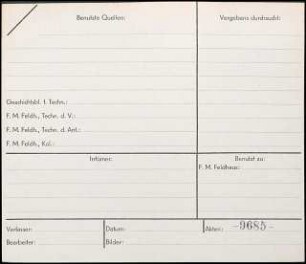 Benutzte Quellen:
Vergebens durchsucht:
Geschichtsbl. f. Techn.:
F. M. Feldh., Techn. d. V.:
F. M. Feldh., Techn. d. Ant.:
F. M. Feldh., Kal.:
Irrtümer:
Benutzt zu:
F. M. Feldhaus:
Verfasser:
Datum:
Akten: -9685-
Bearbeiter:
Bilder: